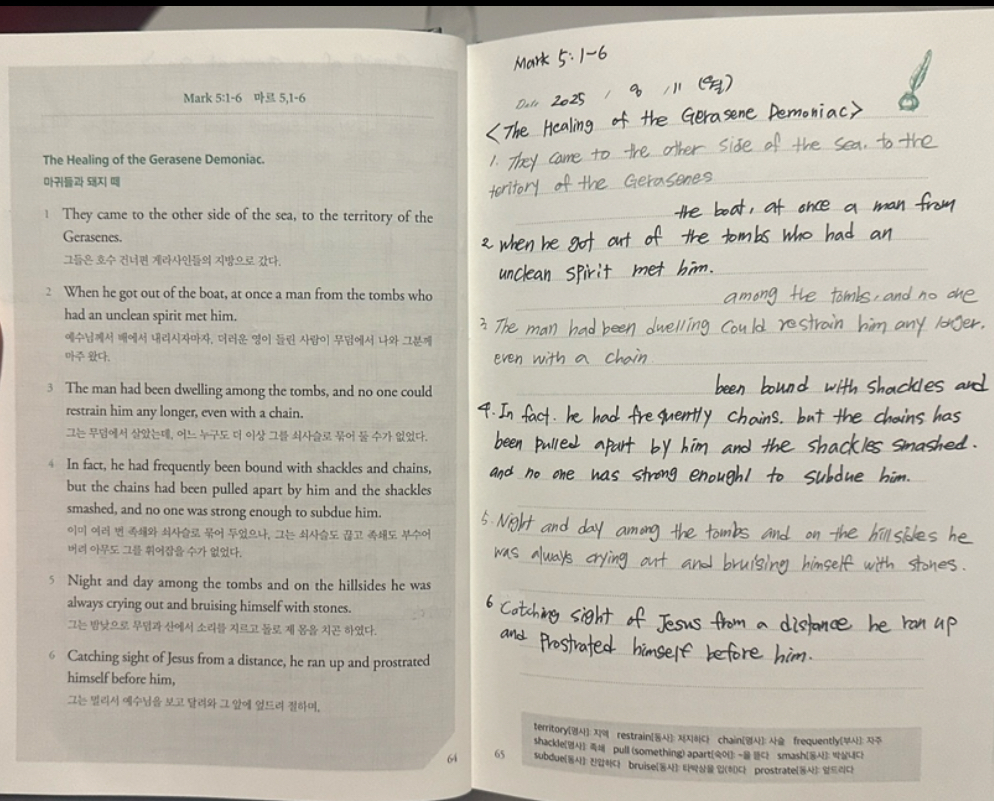 Mark 5:1-6 마르 5,1-6
The Healing of the Gerasene Demoniac.
마귀들과 돼지 떼
1 They came to the other side of the sea, to the territory of the
Gerasenes.
그들은 호수 건너편 게라사인들의 지방으로 갔다.
2 When he got out of the boat, at once a man from the tombs who
had an unclean spirit met him.
예수님께서 배에서 내리시자마자, 더러운 영이 들린 사람이 무덤에서 나와 그분께
마주 왔다.
3 The man had been dwelling among the tombs, and no one could
restrain him any longer, even with a chain.
그는 무덤에서 살았는데, 어느 누구도 더 이상 그를 쇠사슬로 묶어 둘 수가 없었다.
4 In fact, he had frequently been bound with shackles and chains,
but the chains had been pulled apart by him and the shackles
smashed, and no one was strong enough to subdue him.
이미 여러 번 족쇄와 쇠사슬로 묶어 두었으나, 그는 쇠사슬도 끊고 족쇄도 부수어
버려 아무도 그를 휘어잡을 수가 없었다.
5 Night and day among the tombs and on the hillsides he was
always crying out and bruising himself with stones.
그는 밤낮으로 무덤과 산에서 소리를 지르고 돌로 제 몸을 치곤 하였다.
6 Catching sight of Jesus from a distance, he ran up and prostrated
himself before him,
그는 멀리서 예수님을 보고 달려와 그 앞에 엎드려 절하며,
64
Mark 5:1~6
Date 2025 / 8 / 11 (월)
<The Healing of the Gerasene Demoniac>
1. They came to the other side of the sea. to the
toritory of the Gerasenes
the boat, at once a man from
2 when he got out of the tombs who had an
unclean spirit met him.
among the tombs, and no one
3 The man had been dwelling could restrain him any loger.
even with a chain
been bound with shackles and
4. In fact. he had frequently chains. but the chains has
been pulled apart by him and the shackles smashed.
and no one was strong enoughl to subdue him.
5. Night and day among the tombs and on the hillsides he
was always crying out and bruising himself with stones.
6 Catching sight of Jesus from a distance he ran up
and Prostrated himself before him.
65
territory[명사]: 지역 restrain[동사]: 저지하다 chain[명사]: 사슬 frequently[부사]: 자주
shackle[명사]: 족쇄 pull (something) apart[숙어]: ~을 뜯다 smash[동사]: 박살내다
subdue[동사]: 진압하다 bruise[동사]: 타박상을 입(히)다 prostrate[동사]: 엎드리다